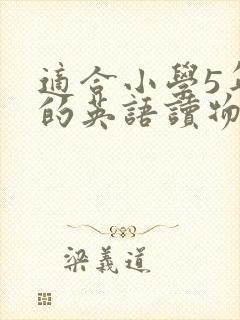 適合小學5
的英語讀物
梁義道